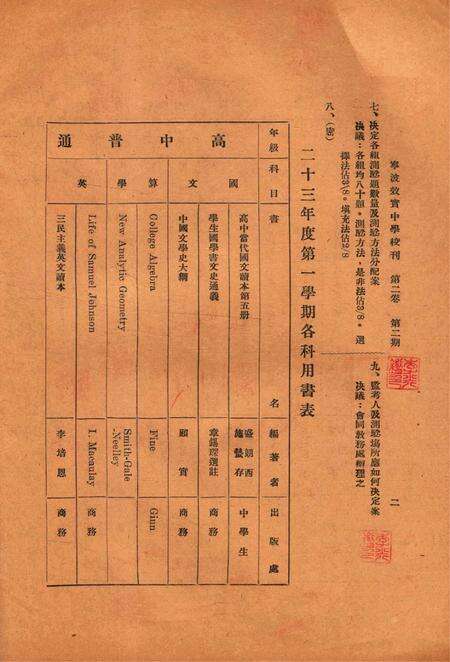 寧波效實中學校刊 第二卷 第二期 二
七、決定各組測驗題數量及測驗方法分配案
決議：各組均八十題。測驗方法，是非法佔3/8。選擇法佔3/8。填充法佔2/8
八、(密)
九、監考人及測驗場所應如何決定案
決議：會同教務處辦理之
二十三年度第一學期各科用書表
年級 科目 書名 編著者 出版處
高中普通
國文 高中當代國文讀本第五册 中學生
學生國學書文史通義 章錫琛選註 商務
中國文學史大綱 顧實 商務
算學 Gollege Algebra Fine Giun
New Analytic Geometry Smith-Gale-Neelley
英 Life of Samuel Johnson Macaulay 商務
三民主義英文讀本 李培恩 商務